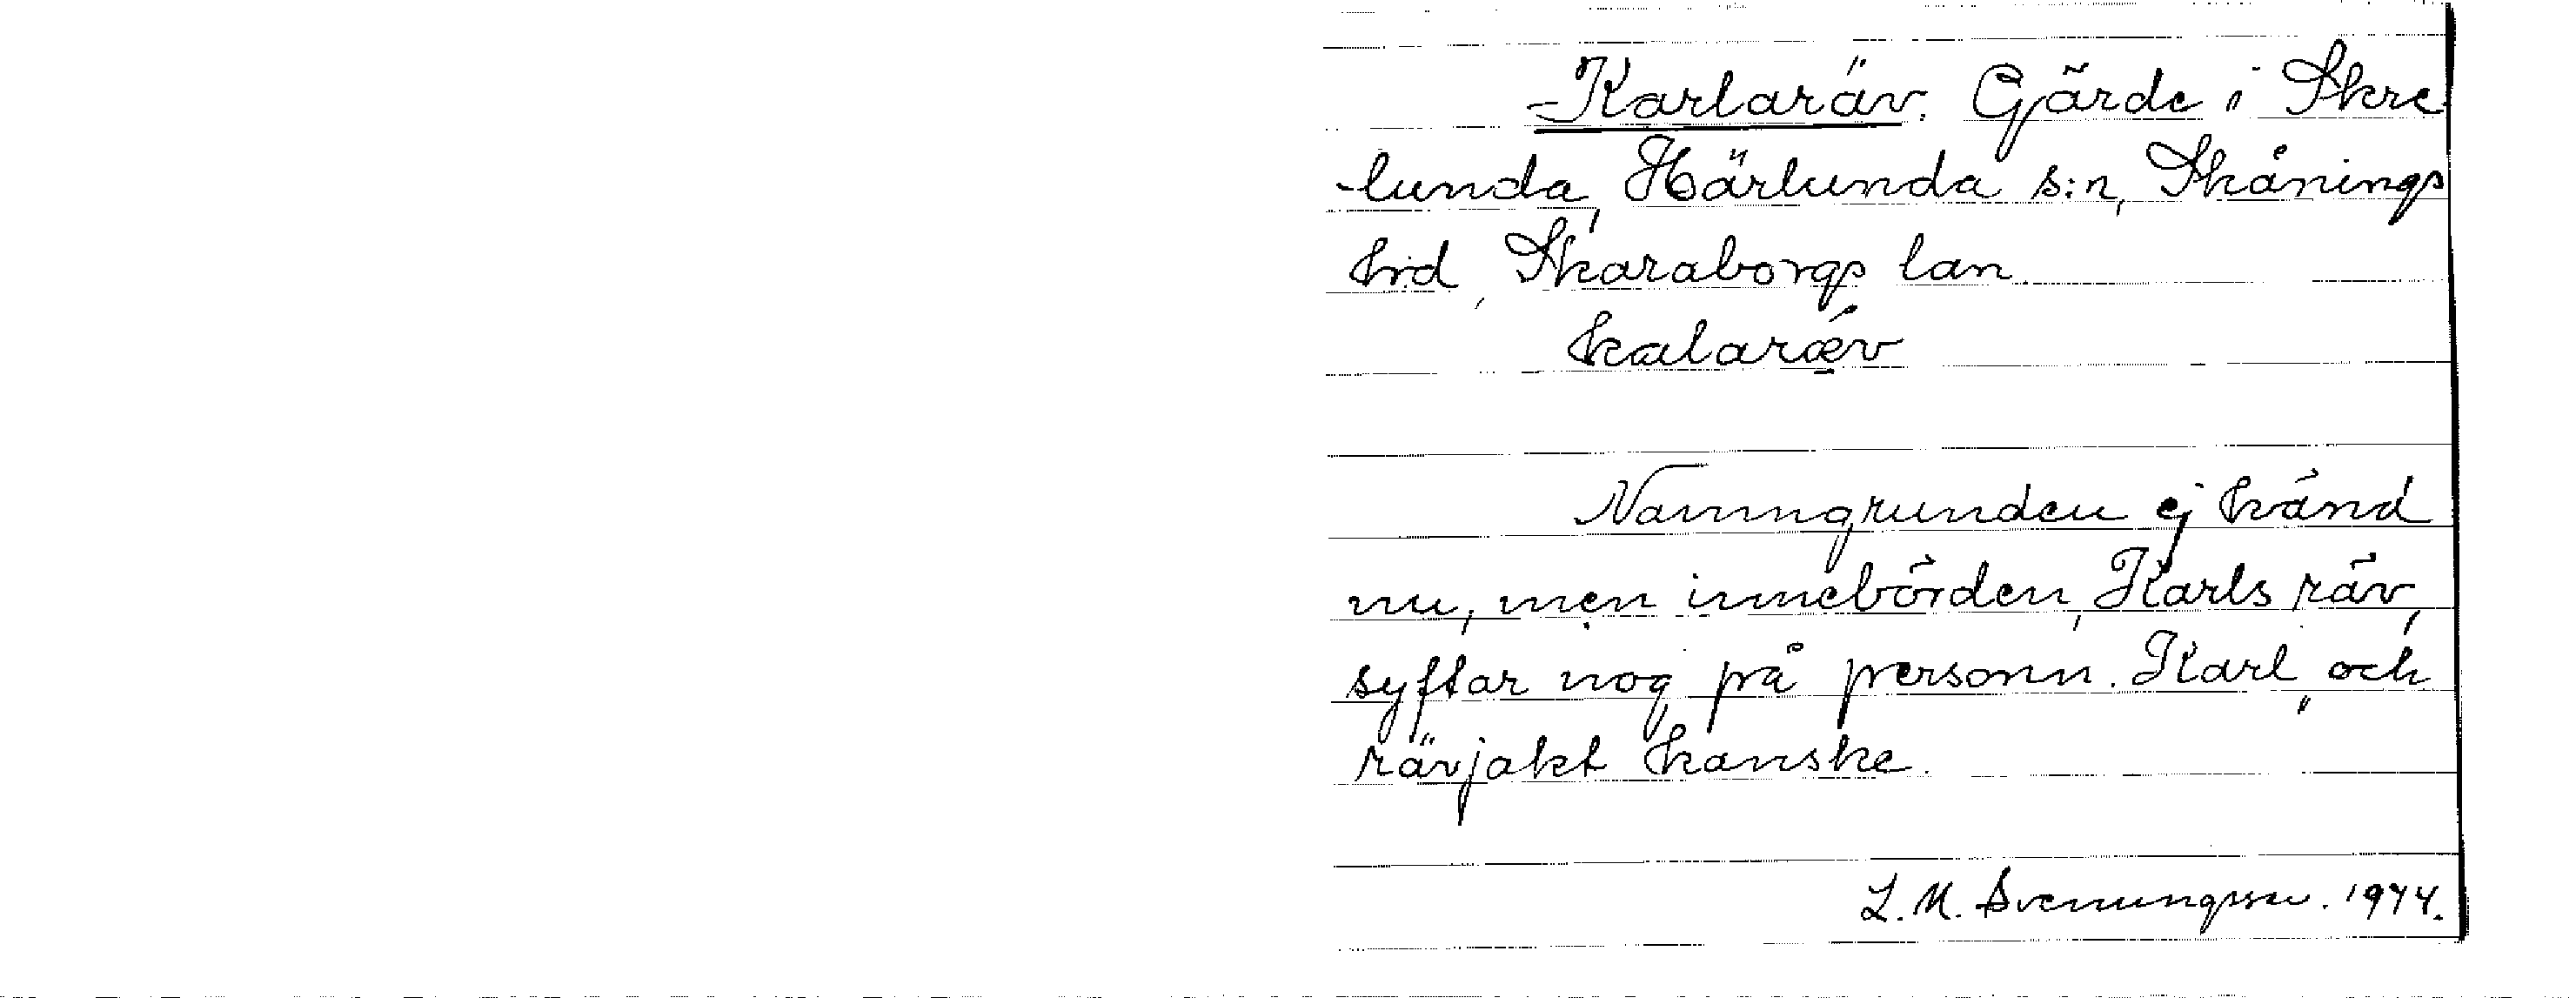 Karlaräv. Gärde i Skre
-lunda, Härlunda s:n, Skånings
hrd, Skaraborgs län.
kalaræv
Namngrunden ej känd
nu, men innebörden, Karls räv,
syftar nog på personn. Karl, och
rävjakt kanske.
L. M. Svenungsson. 1944.